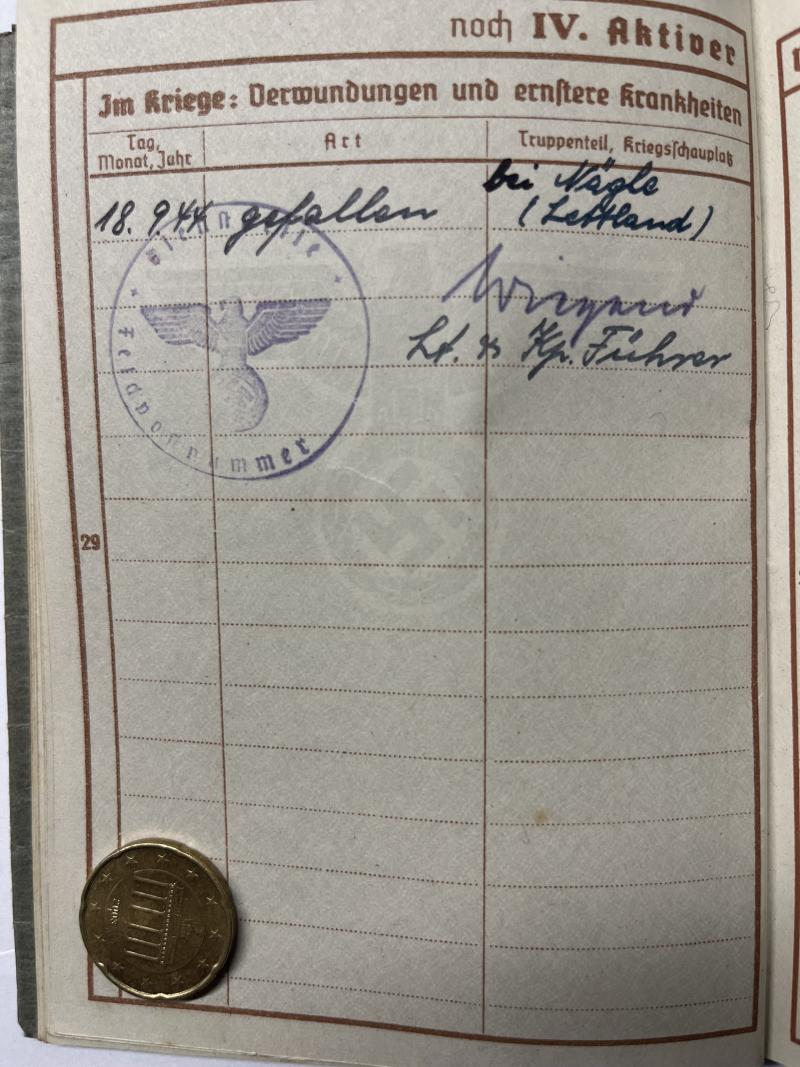 noch IV. Aktiver
Im Kriege: Verwundungen und ernstere Krankheiten
Tag, Monat, Jahr
Art
Truppenteil, Kriegsschauplatz
18. 9.44 gefallen bei Nägle
(Lettland)
Lt. u. Kp. Führer
Dienststelle
Feldpostnummer
29